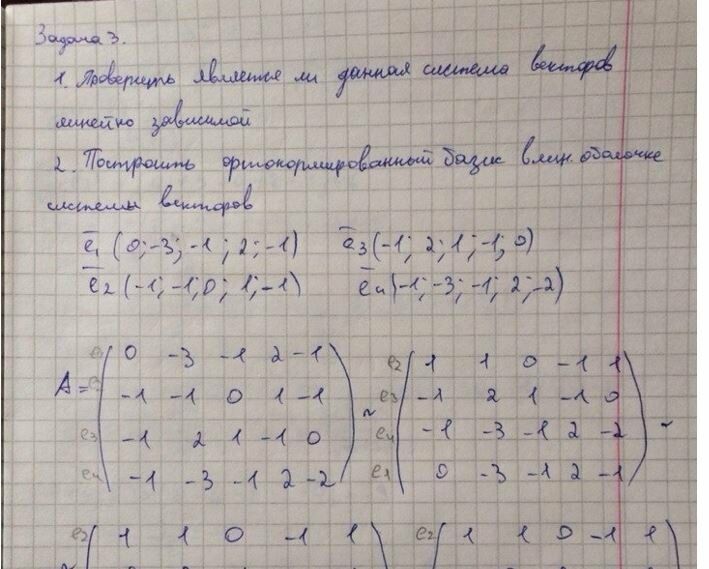 Задача 3.
1. Проверить является ли данная система векторов
линейно зависимой
2. Построить ортонормированный базис в лин. оболочке
системы векторов
e̅₁ (0; -3; -1; 2; -1) e̅₃ (-1; 2; 1; -1; 0)
e̅₂ (-1; -1; 0; 1; -1) e̅₄ (-1; -3; -1; 2; -2)
0 -3 -1 2 -1 e₂ 1 1 0 -1 1
A = -1 -1 0 1 -1 ~ e₃ -1 2 1 -1 0 ~
e₃ -1 2 1 -1 0 e₄ -1 -3 -1 2 -2
e₄ -1 -3 -1 2 -2 e₁ 0 -3 -1 2 -1
e₂ 1 1 0 -1 1 e₂ 1 1 0 -1 1